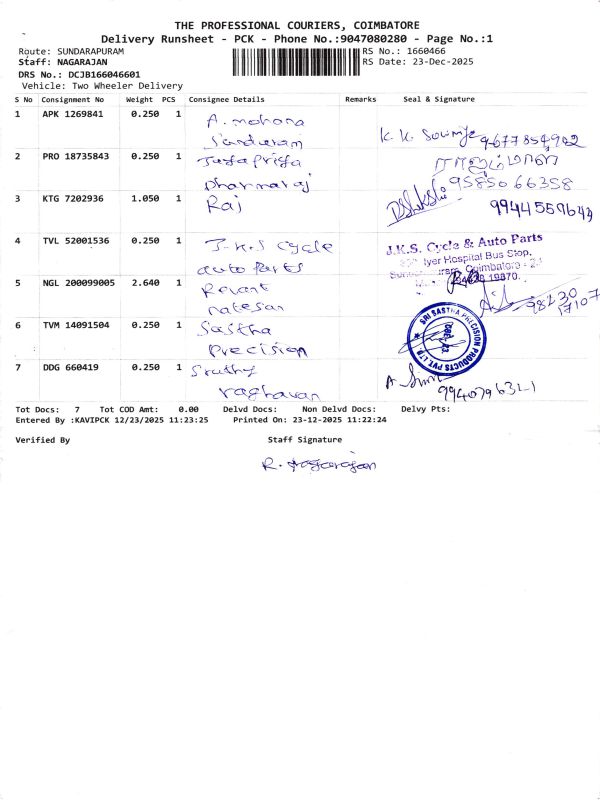 THE PROFESSIONAL COURIERS, COIMBATORE
Delivery Runsheet - PCK - Phone No.:9047080280 - Page No.:1
Route: SUNDARAPURAM RS No.: 1660466
Staff: NAGARAJAN RS Date: 23-Dec-2025
DRS No.: DCJB166046601
Vehicle: Two Wheeler Delivery
S No Consignment No Weight PCS Consignee Details Remarks Seal & Signature
1 APK 1269841 0.250 1 A. mohana
K. K. 9677854902
2 PRO 18735843 0.250 1
Dharmaraj 9585066358
3 KTG 7202936 1.050 1 Raj
4 TVL 52001536 0.250 1 J.K.S Cycle J.K.S. Cycle & Auto Parts
auto Parts Iyer Hospital Bus Stop,
Coimbatore - 24
5 NGL 200099005 2.640 1
natesan 98230
17107
6 TVM 14091504 0.250 1 Sastha SRI SASTHA PRECISION PRODUCTS PVT. LTD.
Precision
7 DDG 660419 0.250 1 Sruthy
raghavan
Tot Docs: 7 Tot COD Amt: 0.00 Delvd Docs: Non Delvd Docs: Delvy Pts:
Entered By :KAVIPCK 12/23/2025 11:23:25 Printed On: 23-12-2025 11:22:24
Verified By Staff Signature
R. Nagarajan